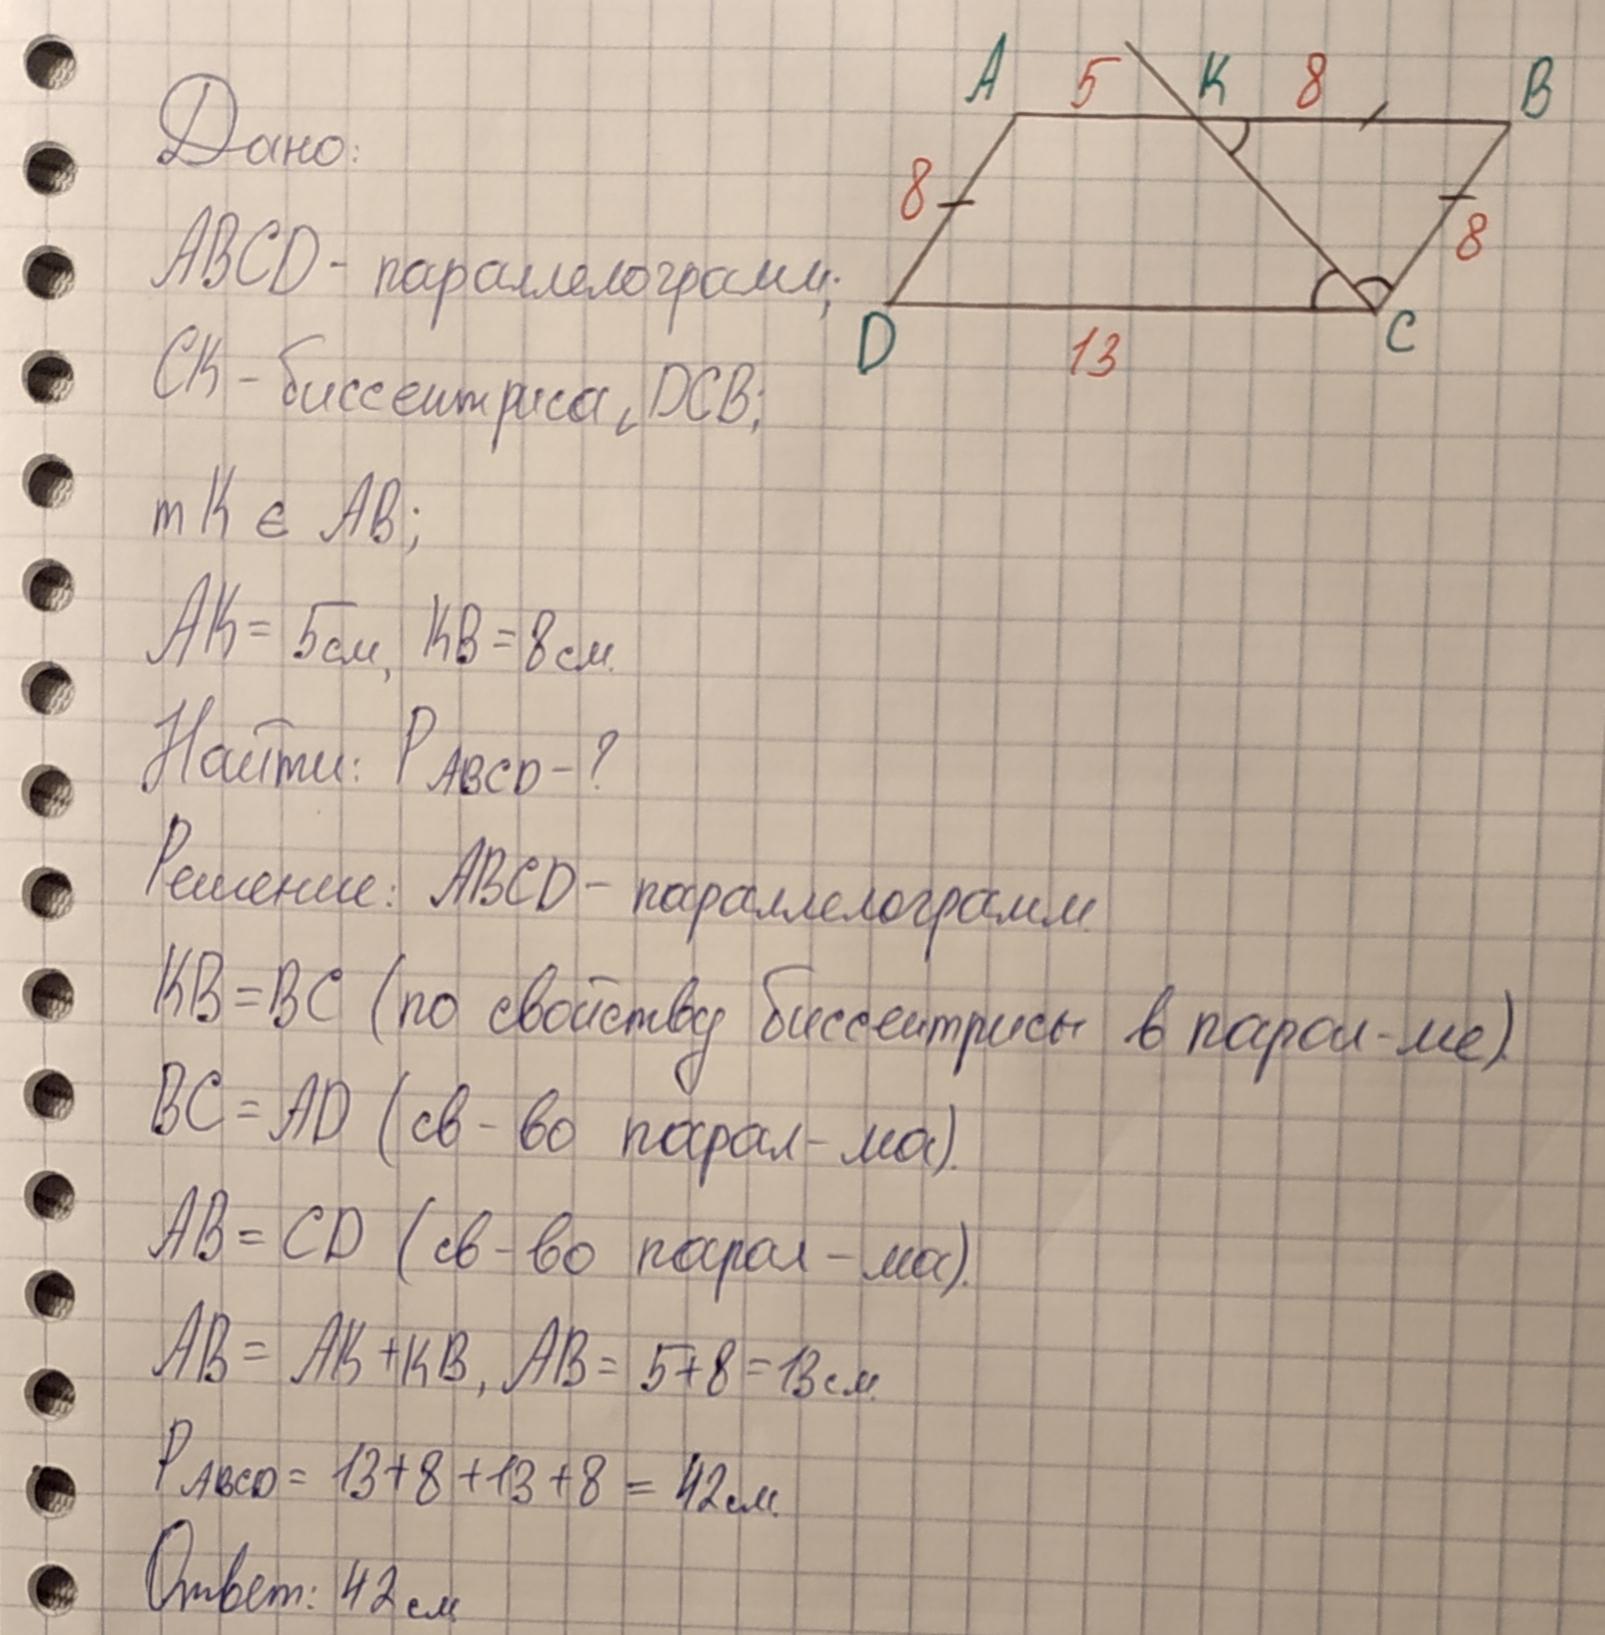 A 5 K 8 B
8 8
D 13 C
Дано:
ABCD - параллелограмм;
CK - биссектриса ∠DCB;
т K ∈ AB;
AK = 5 см, KB = 8 см.
Найти: P ABCD - ?
Решение: ABCD - параллелограмм
KB = BC (по свойству биссектрисы в парал-ме).
BC = AD (св-во парал-ма).
AB = CD (св-во парал-ма).
AB = AK + KB, AB = 5+8 = 13 см.
P ABCD = 13+8+13+8 = 42 см.
Ответ: 42 см